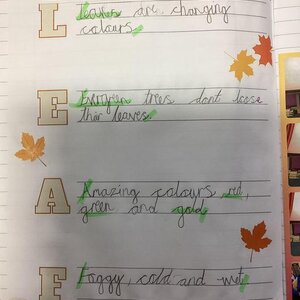 L Leaves are changing
colours.
E Evergreen trees dont loose
thir leaves.
A Amazing colours red,
green and gold
F Foggy, cold and wet